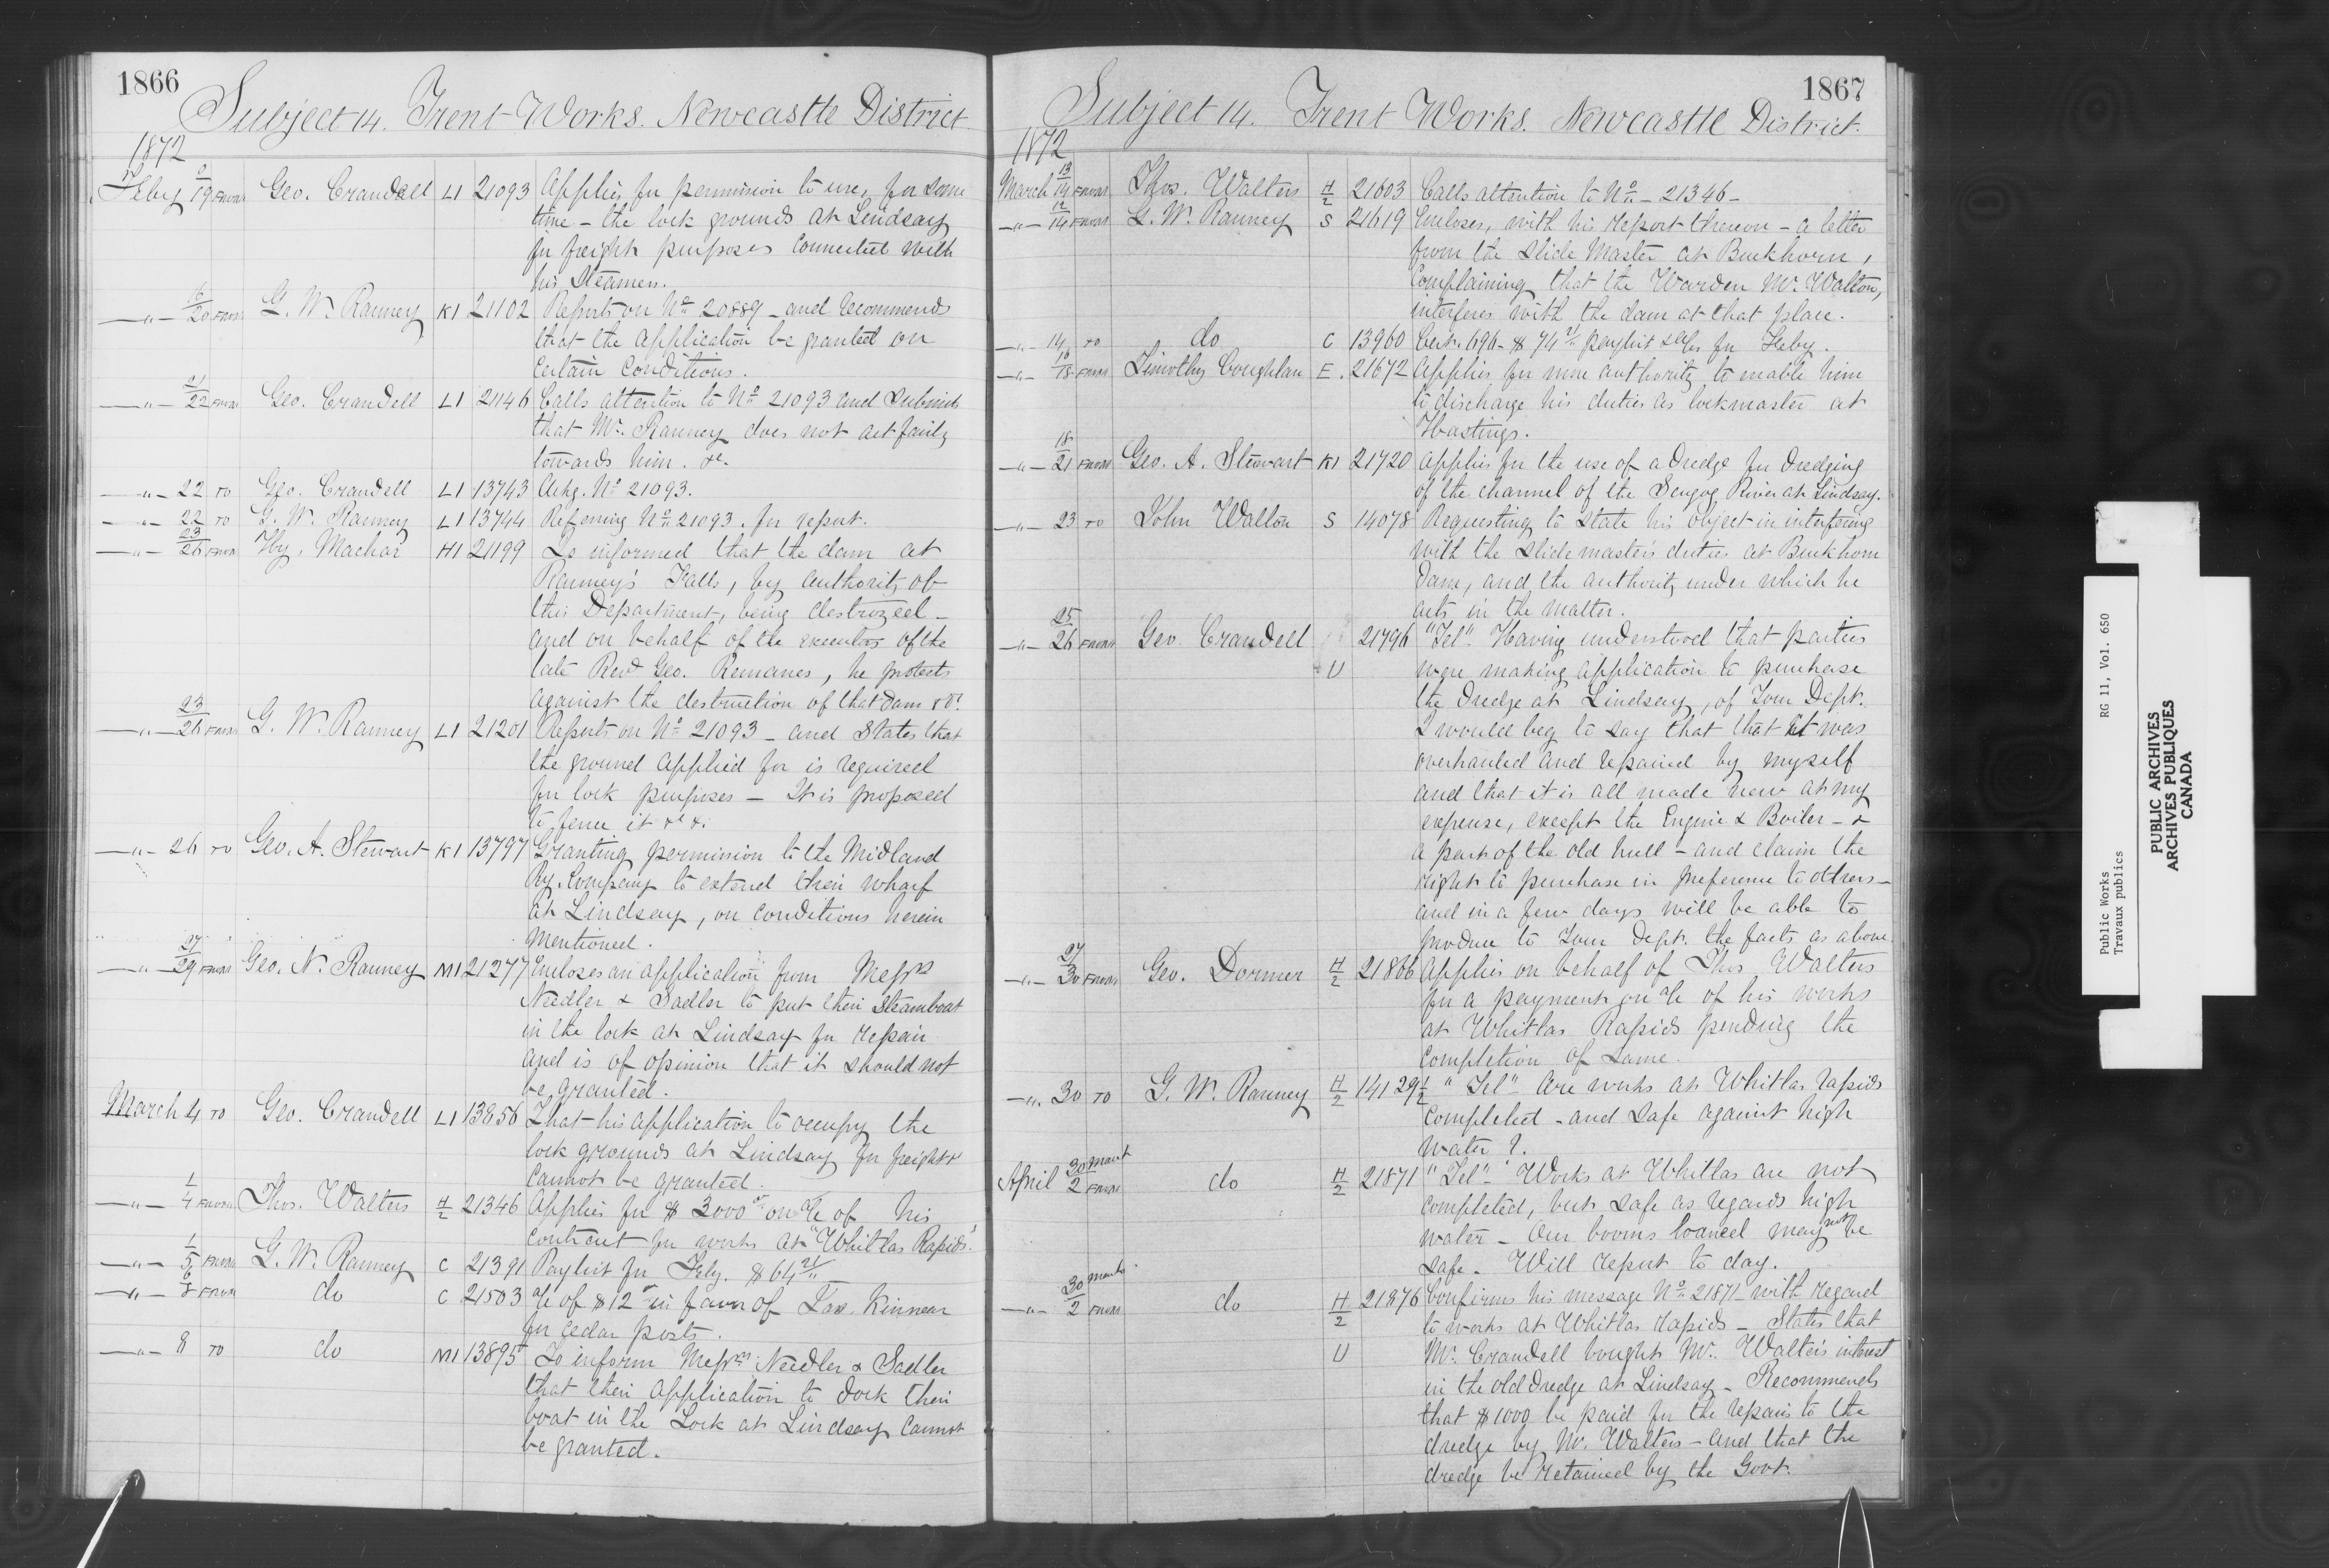 1866
Subject 14. Trent Works. Newcastle District
1872
Feby 19 From Geo. Crandell L1 21093 Applies for permission to use, for some
time - the lock grounds at Lindsay
for freight purposes connected with
his Steamers.
—"— 16/20 From G. W. Ranney K1 21102 Reports on No 20889 - and recommends
that the application be granted on
certain conditions.
—"— 21/22 From Geo. Crandell L1 21146 Calls attention to No 21093 and submits
that Mr. Ranney does not act fairly
towards him. &c.
—"— 22 To Geo. Crandell L1 13743 Ackg. No 21093.
—"— 22 To G. W. Ranney L1 13744 Referring No 21093. for report.
—"— 23/26 From Hy. Machar H1 21199 Is informed that the dam at
Ranney's Falls, by authority of
this Department, being destroyed -
and on behalf of the executors of the
late Revd Geo. Romanes, he protests
against the destruction of that dam &c.
—"— 23/26 From G. W. Ranney L1 21201 Reports on No 21093 - and States that
the ground applied for is required
for lock purposes - It is proposed
to fence it &c &.
—"— 26 To Geo. A. Stewart K1 13797 Granting permission to the Midland
Ry. Company to extend their wharf
at Lindsay, on conditions herein
mentioned.
—"— 27/29 From Geo. N. Ranney M1 21277 Encloses an application from Messrs
Needler & Sadler to put their Steamboat
in the lock at Lindsay for repair
and is of opinion that it should not
be granted.
March 4 To Geo. Crandell L1 13856 That his application to occupy the
lock grounds at Lindsay for freight &
cannot be granted.
—"— 1/4 From Thos. Walters H/2 21346 Applies for $ 3000 on a/c of his
contract for works at "Whitlas Rapids".
—"— 1/5 From G. W. Ranney C 21391 Paylist for Feby. $ 64
—"— 6/8 From do C 21503 a/c of $12 in favor of Kinnear
for cedar posts.
—"— 8 To do M1 13895 To inform Messrs Needler & Sadler
that their application to dock their
boat in the Lock at Lindsay cannot
be granted.
1867
Subject 14. Trent Works. Newcastle District.
1872
March 13/14 From Thos. Walters H/2 21603 Calls attention to No - 21346 -
—"— 12/14 From G. W. Ranney S 21619 Encloses, with his report thereon - a letter
from the Slide Master at Buckhorn,
complaining that the Warden Mr. Walton,
interferes with the dam at that place.
—"— 14 To do C 13960 Cert. 696 - $ 74 paylist for Feby.
—"— 16/18 From Timothy Coughlan E. 21672 Applies for more authority to enable him
to discharge his duties as lockmaster at
Hastings.
—"— 18/21 From Geo. A. Stewart K1 21720 Applies for the use of a Dredge for dredging
of the channel of the Scugog River at Lindsay.
—"— 23 To John Walton S 14078 Requesting to state his object in interfering
with the Slide master's duties at Buckhorn
Dam, and the authority under which he
acts in the matter.
—"— 25/26 From Geo. Crandell 21796 "Tel" Having understood that parties
U were making application to purchase
the Dredge at Lindsay, of Your Dept.
I would beg to say that that it was
overhauled and repaired by myself
and that it is all made new at my
expense, except the Engine & Boiler - &
a part of the old hull - and claim the
right to purchase in preference to others -
and in a few days will be able to
produce to Your Dept. the facts as above.
—"— 27/30 From Geo. Dormer H/2 21866 Applies on behalf of Thos Walters
for a payment on a/c of his works
at Whitlas Rapids pending the
completion of same.
—"— 30 To G. W. Ranney H/2 14129 1/2 "Tel" Are works at Whitlas rapids
completed - and safe against high
water ?.
April 30 March/2 From do H/2 21871 "Tel" - Works at Whitlas are not
completed, but safe as regards high
water - Our booms loaned may not be
safe - Will report to day.
—"— 30 March/2 From do H/2 21876 Confirms his message No 21871 - with regard
to works at Whitlas rapids - States that
U Mr. Crandell bought Mr. Walters interest
in the old dredge at Lindsay - Recommends
that $1000 be paid for the repairs to the
dredge by Mr. Walters - and that the
dredge be retained by the Govt.
Public Works
Travaux publics
RG 11, Vol. 650
PUBLIC ARCHIVES
ARCHIVES PUBLIQUES
CANADA